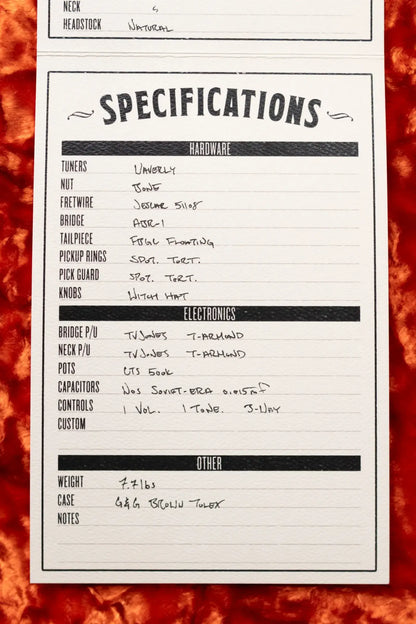 NECK
HEADSTOCK NATURAL
SPECIFICATIONS
HARDWARE
TUNERS WAVERLY
NUT BONE
FRETWIRE JESCAR 51108
BRIDGE ABR-1
TAILPIECE FBGC FLOATING
PICKUP RINGS SPOT. TORT.
PICK GUARD SPOT. TORT.
KNOBS WITCH HAT
ELECTRONICS
BRIDGE P/U TV JONES T-ARMOND
NECK P/U TV JONES T-ARMOND
POTS CTS 500K
CAPACITORS NOS SOVIET-ERA 0.015
CONTROLS 1 VOL. 1 TONE. 3-WAY
CUSTOM
OTHER
WEIGHT 7.7 lbs
CASE G&G BROWN TOLEX
NOTES